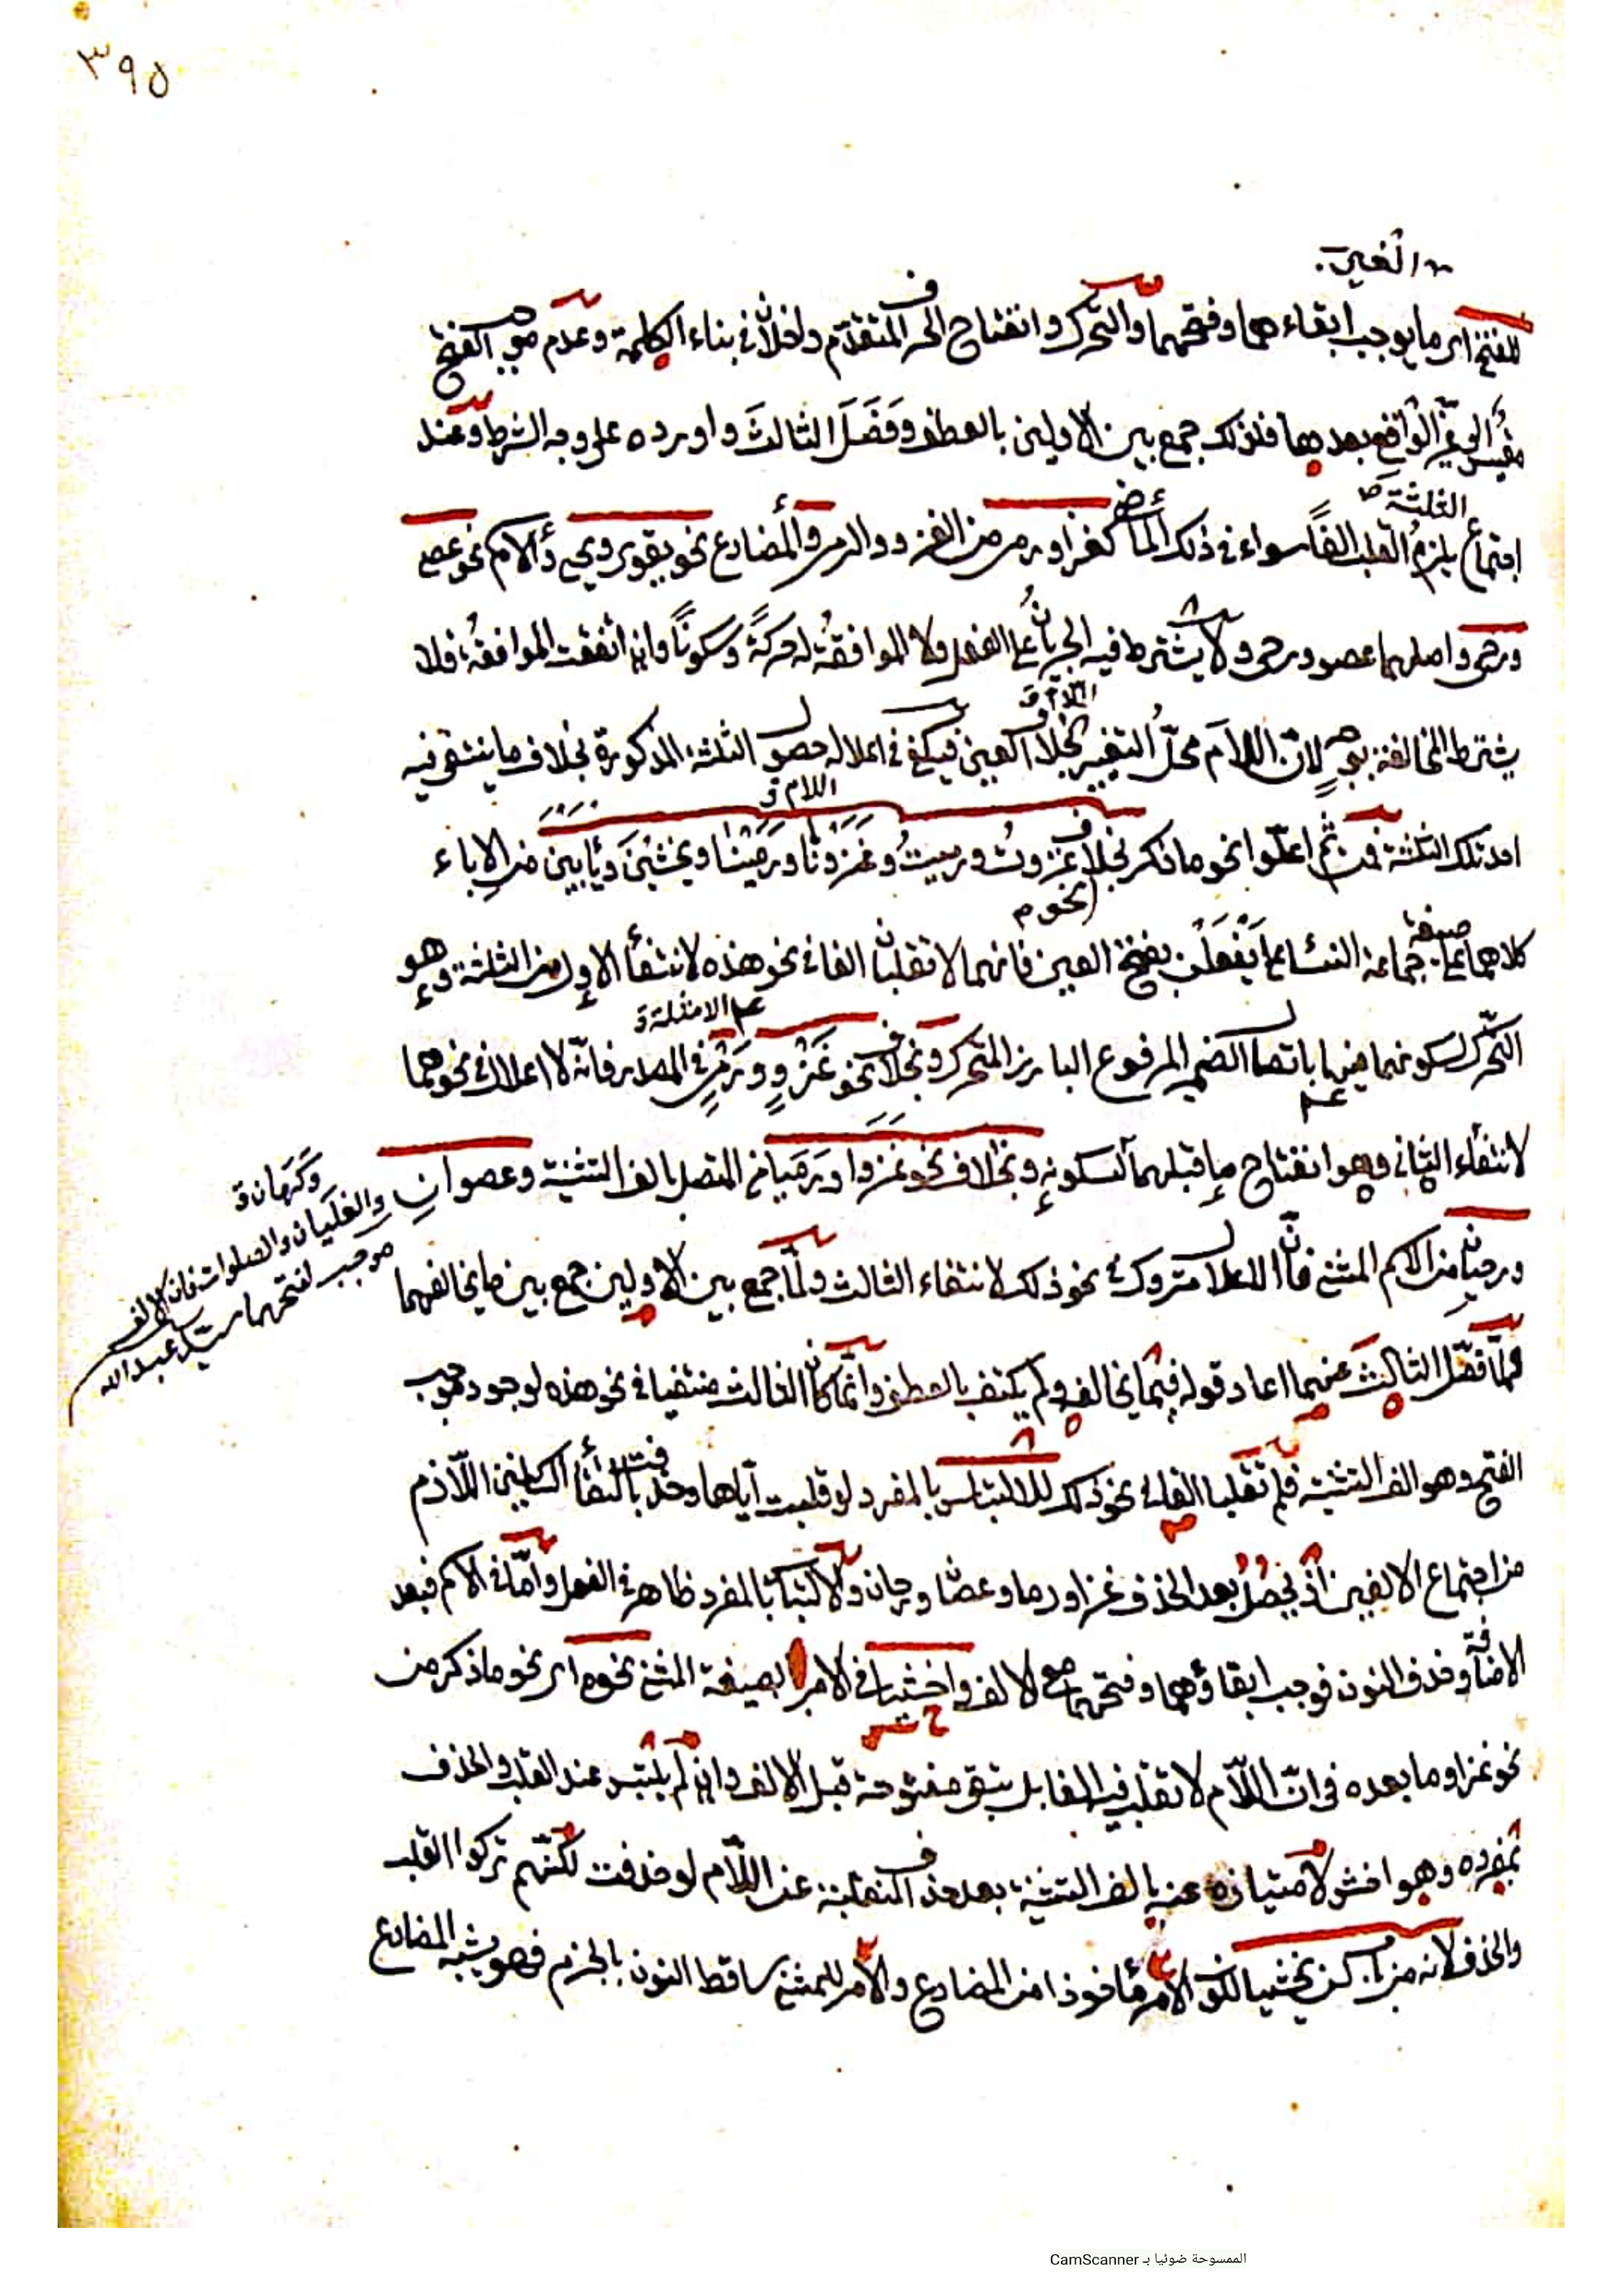 ٣٩٥
للفتح اى ما يوجب ابقاءهما وفتحهما والتحرك وانفتاح الحرف المتقدم دخلان في بناء الكلمة وعدم موجب الفتح
بعدهما فلذلك جمع بين الاولين بالعطف وفَصَلَ الثالثَ واورده على وجه الشرط وعند
اجتماع الثلثة يلزم القلب الفاً سواء في ذلك الماضى كغزا ورمى من الغزو والرمى والمضارع نحو يقوى ويحيى والاسم نحو عصى
ورحى واصلهما عصو ورحى ولا يشترط فيه الجريان على الفعل ولا الموافقة له حركةً وسكوناً وان اتفقت الموافقة فلا
يشترط المخالفة بوجهٍ لان اللام محلّ التغيير بخلاف العين فيكفى في اعلاله حصول الثلثة المذكورة بخلاف ما ينتفى فيه
احد تلك الثلثة فمن ثم اعلّوا نحو ما ذكر بخلاف غزوتُ ورميتُ وغَزَوْنَا ورَمَيْنَا ويخشَيْنَ ويأبَيْنَ من الاباء
كلاهما على صيغة جماعة النساء على يَفْعَلْنَ بفتح العين فانهما لا تقلبان الفا في نحو هذه لانتفاء الاول من الثلثة وهو
التحرّك لسكونهما فيها باتصال الضمير المرفوع البارز المتحرك وبخلاف نحو غَزْوٍ ورَمْىٍ في المصدر فانّه لا اعلال في نحوهما
لانتفاء الثانى وهو انفتاح ما قبلهما لسكونه وبخلاف نحو غزوا ورَمَيا في المتصل بالف التثنية وعصوانِ
وكَرَهان
والغلَيان والصلوات فان الالف
موجب لفتحهما سيد عبدالله
ورحيان من الاسم المثنى فان الاعلال متروك في نحو ذلك لانتفاء الثالث ولمّا جمع بين الاولين جمع بين ما يخالفهما
ولمّا فصّل الثالث عنهما اعاد قوله فيما يخالفه ولم يكتف بالعطف وانّما كان الثالث منتفيا في نحو هذه لوجود موجب
الفتح وهو الف التثنية فلم تقلبا الفا في نحو ذلك للالتباس بالمفرد لو قلبت اياها وحذفت بالتقاء الساكنين اللازم
من اجتماع الالفين اذ يحصل بعد الحذف غزا ورما وعصا ورحان والالتباس بالمفرد ظاهر في الفعل وامّا في الاسم فبعد
الاضافة وحذف النون فوجب ابقاؤهما وفتحهما مع الالف واخشيا في الامر بصيغة المثنى نحوه اى نحو ما ذكر من
نحو غزوا وما بعده في انّ اللام لا تقلب فيه الفا بل تبقى مفتوحة قبل الالف وان لم يلتبس عند القلب والحذف
بمفرده وهو اخش لامتيازه عنه بالف التثنية بعد حذف المنقلبة عن اللام لو حذفت لكنّهم تركوا القلب
والحذف لانه من باب لن يخشيا لكون الامر مأخوذا من المضارع والامر للمثنى ساقط النون بالجزم فهو يشبه المضارع
الممسوحة ضوئيا بـ CamScanner